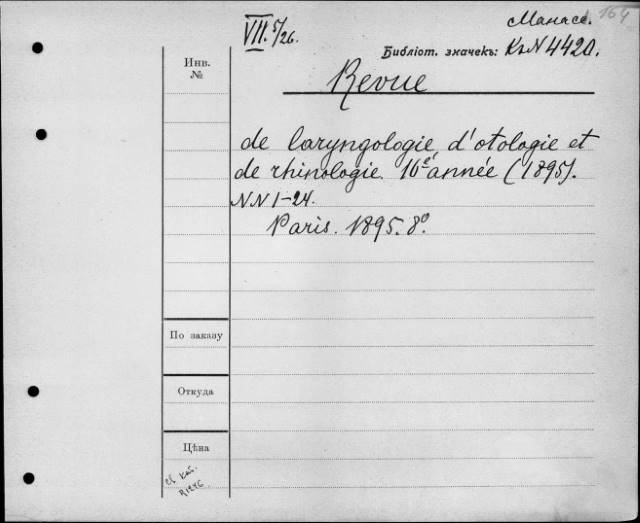 VII. 5/26.
Манасс. 164
Библіот. значекъ: Кз N 4420.
Инв. №
Revue
de laryngologie, d'otologie et
de rhinologie. 16e année (1895).
NN 1-24.
Paris. 1895. 8º.
По заказу
Откуда
Цѣна